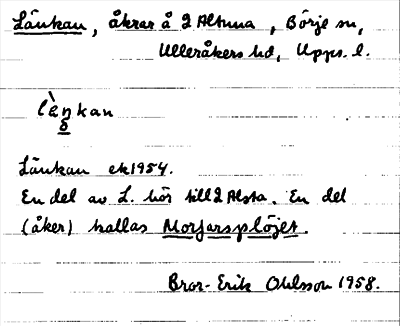 Länkan, åkrar å 2 Altuna, Börje sn,
Ulleråkers hd, Upps. l.
lὲŋkan
Länkan ek 1954.
En del av L. hör till 2 Alsta. En del
(åker) kallas Morfarsplöjet.
Bror-Erik Ohlsson 1958.